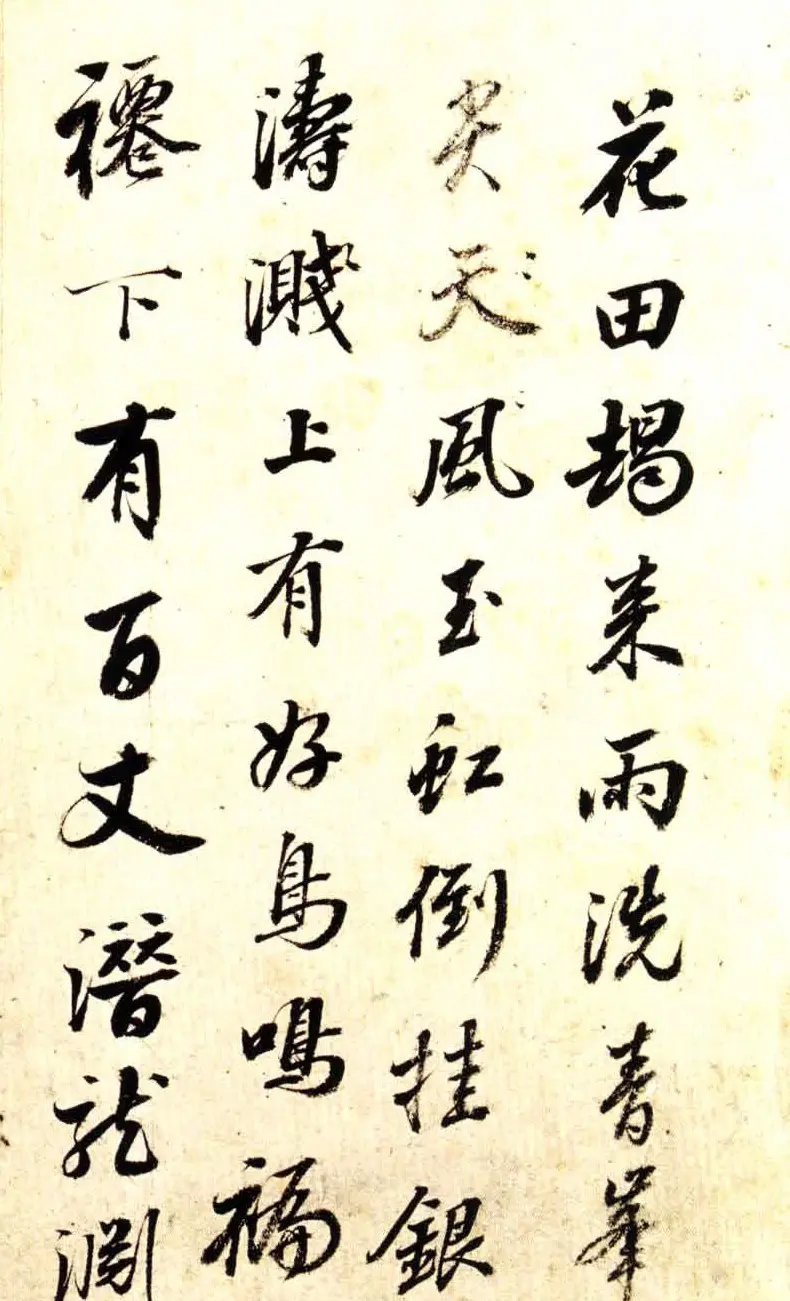 花田朅来雨洗青峯
尖天風玉虹倒挂銀
濤濺上有好鳥鳴褊
褼下有百丈潛龍淵